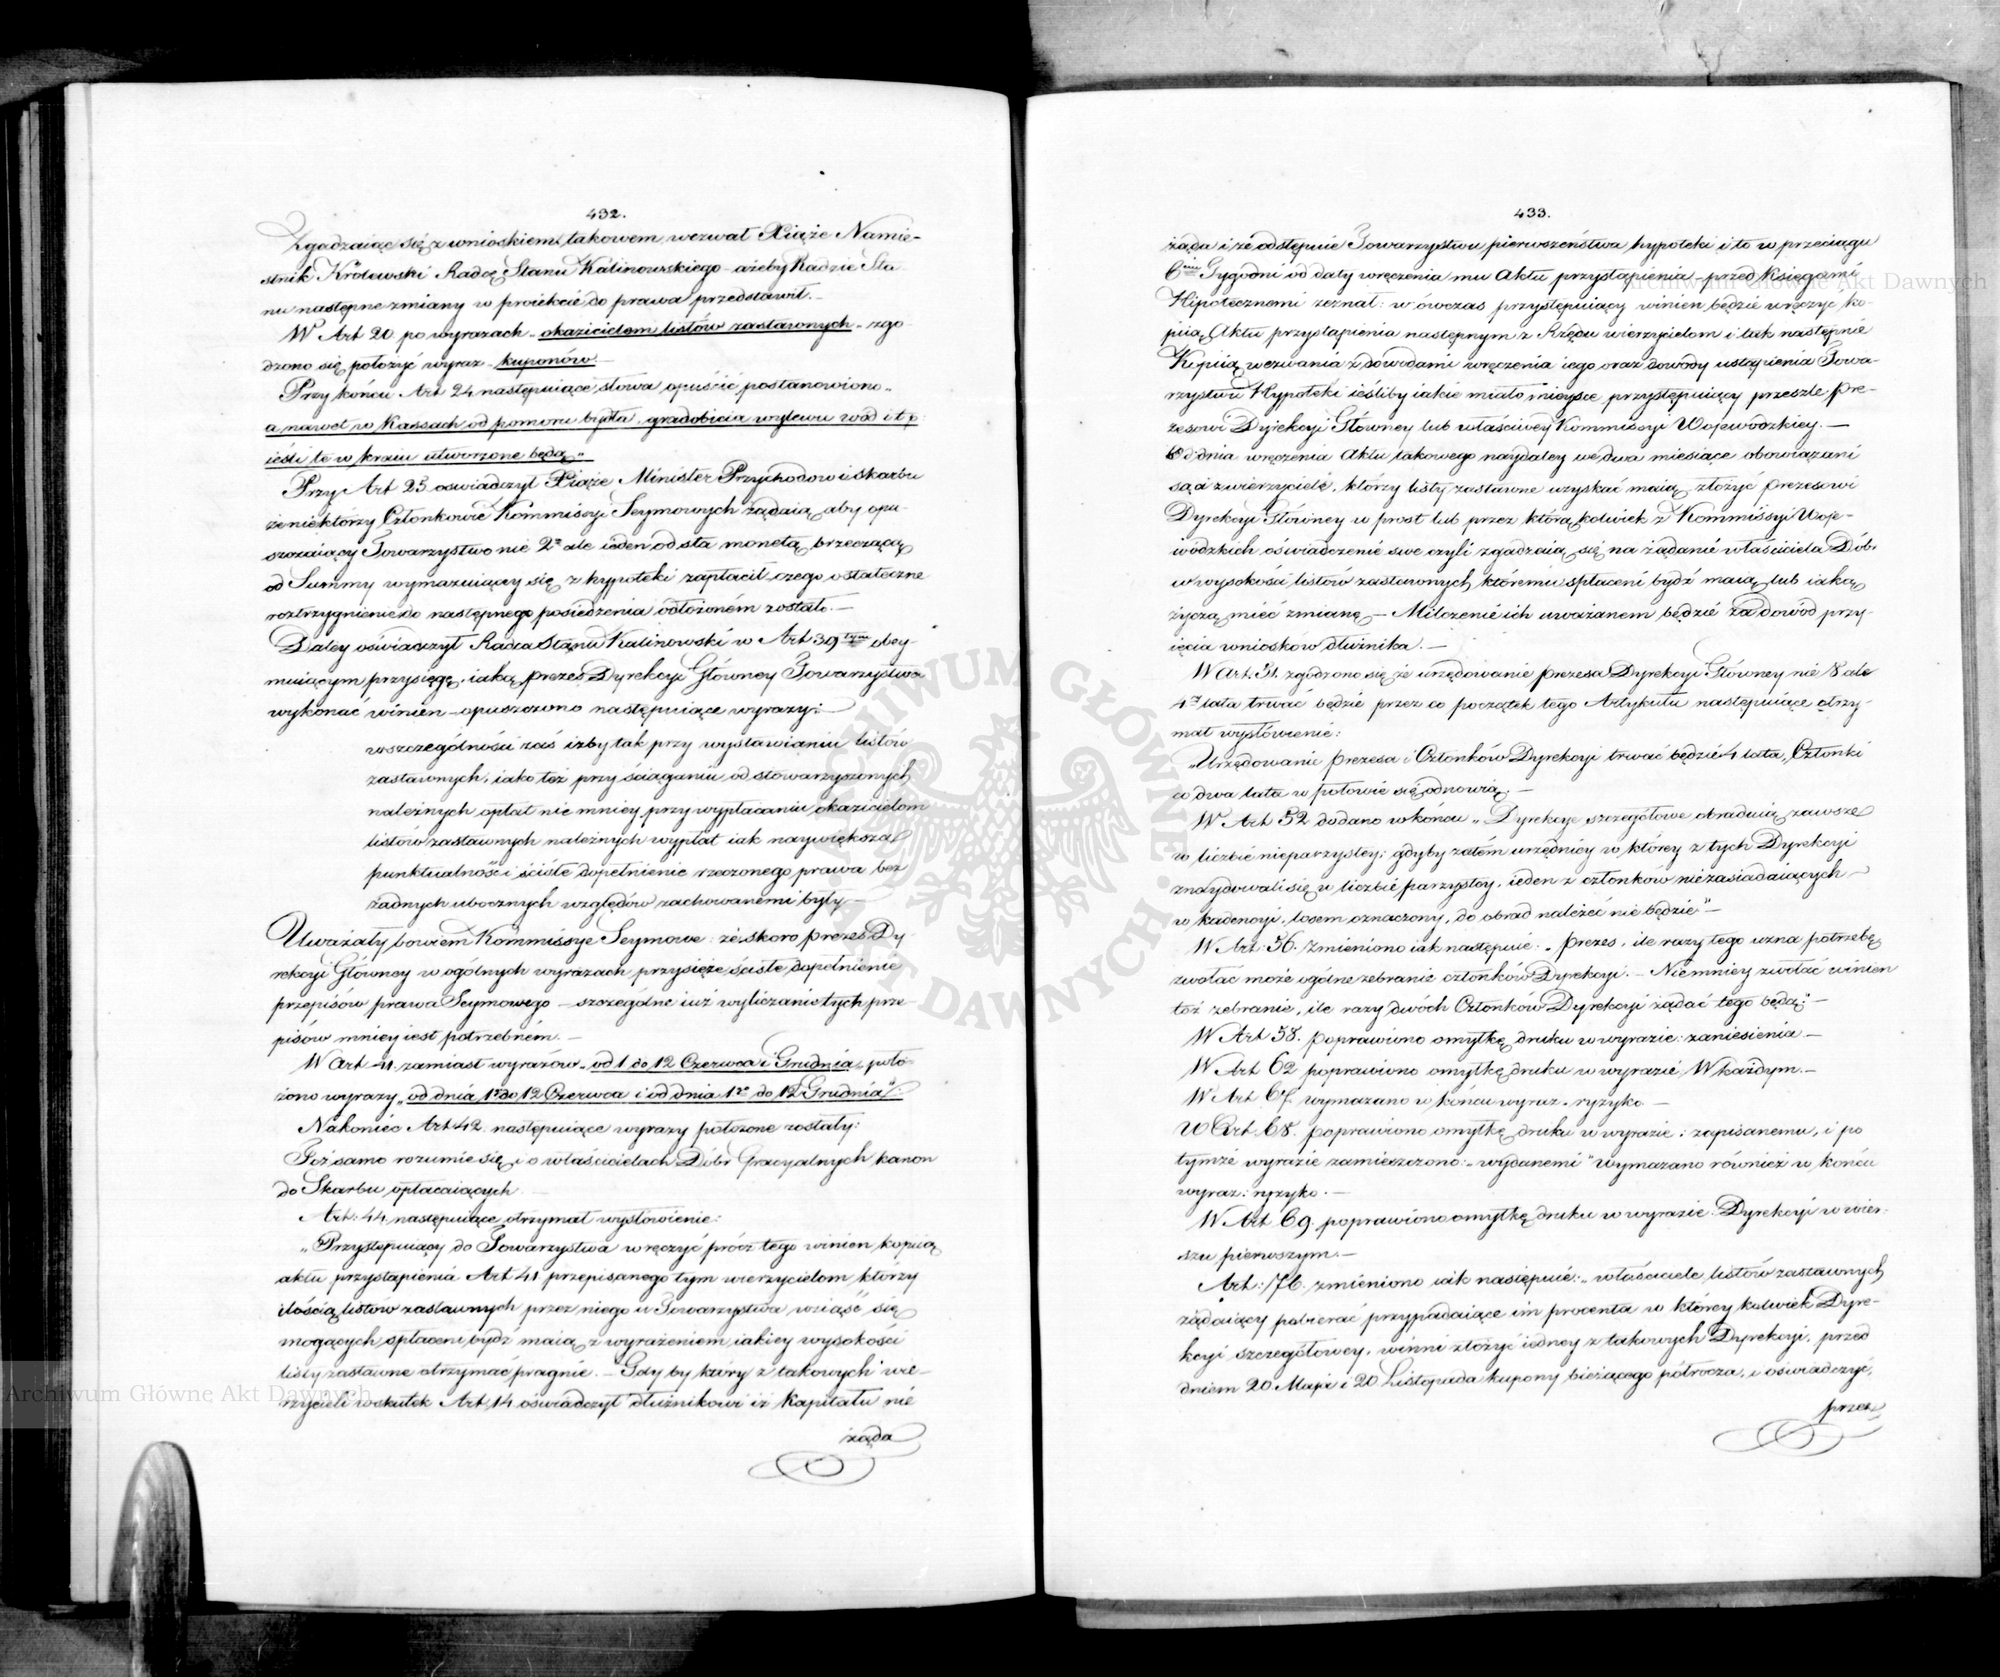 432.
Zgadzaiąc się z wnioskiem takowem, wezwał Xiąże Namie-
stnik Królewski Radcę Stanu Kalinowskiego ażeby Radzie Sta
nu następne zmiany w proiekcie do prawa przedstawił.—
W Art 20 po wyrazach „okazicielom listów zastawnych„ zgo
dzono się położyć wyraz „kuponów—
Przy końcu Art 24 następuiące słowa opuścić postanowiono„
a nawet w Kassach od pomoru bydła, gradobicia wylewu wód i t p
ieśli te w kraiu utworzone będą„
Przy Art 25 oświadczył Xiąże Minister Przychodow i Skarbu
że niektórzy Członkowie Kommissyi Seymowych żądaią, aby opu-
szczaiący Towarzystwo nie 2 ale ieden od sta monetą brzęczącą
od Summy wymazuiący się z hypoteki zapłacił czego ostateczne
roztrzygnienie do następnego posiedzenia odłożonem zostało.—
Daley oświadczył Radca Stanu Kalinowski w Art 39tym obey-
muiącym przysięgę, iaką prezes Dyrekcyi Główney Towarzystwa
wykonać winien — opuszczono następuiące wyrazy:
wszczególności zaś iżby tak przy wystawianiu listów
zastawnych, iako też przy ściąganiu od stowarzyszonych
należnych opłat nie mniey przy wypłacaniu okazicielom
listów zastawnych należnych wypłat iak naywiększa
punktualność i ściśłe dopełnienie rzeczonego prawa bez
żadnych ubocznych względów zachowanemi były—
Uważały bowiem Kommissye Seymowe: że skoro prezes Dy-
rekcyi Główney w ogólnych wyrazach przysięże ściśłe dopełnienie
przepisów prawa Seymowego — szczególne iuż wyliczanie tych prze-
pisów mniey iest potrzebnem.—
W Art 41. zamiast wyrazów „od 1 do 12 Czerwca i Grudnia„ poło-
żono wyrazy „od dnia 1 do 12 Czerwca i od dnia 1 do 12 Grudnia„:
Nakoniec Art 42. następuiące wyrazy położone zostały:
Toż samo rozumie się, i o właścicielach Dóbr Gracyalnych kanon
do Skarbu opłacaiących
Art: 44. następuiące otrzymał wysłowienie:
„Przystępuiący do Towarzystwa wręczyć prócz tego winien kopiią
aktu przystąpienia Art 41 przepisanego tym wierzycielom, którzy
ilością listów zastawnych przez niego u Towarzystwa wziąść się
mogących spłaceni bydź maią, z wyrażeniem iakiey wysokości
listy zastawne otrzymać pragnie. — Gdy by który z takowych wie-
rzycieli wskutek Art. 14 oświadczył dłużnikowi iż Kapitału nie
żąda
433.
żąda i że odstępuie Towarzystwu pierwszeństwa hypoteki i to w przeciągu
6ciu Tygodni od daty wręczenia mu Aktu przystąpienia — przed Księgami
Hipotecznemi zeznał: wówczas przystępuiący winien będzie wręczyć ko-
piią Aktu przystąpienia następnym z Rzędu wierzycielom i tak następnie
Kopiią wezwania z dowodami wręczenia iego oraz dowody ustąpienia Towa-
rzystwu Hypoteki ieśliby iakie miało mieysce przystępuiący prześle Pre-
zesowi Dyrekcyi Główney lub właściwey Kommissyi Wojewódzkiey.—
Od dnia wręczenia Aktu takowego naydaley we dwa miesiące obowiązani
są ci z wierzycieli, którzy listy zastawne uzyskać maią złożyć prezesowi
Dyrekcyi Główney w prost lub przez którą kolwiek z Kommissyi Woje-
wódzkich oświadczenie swe czyli zgadzaią się na żądanie właściciela Dób.
w wysokości listów zastawnych, któremi spłaceni bydź maią, lub iaką
życzą mieć zmianę — Milczenie ich uważanem będzie za dowód przy-
ięcia wniosków dłużnika.—
W Art. 51. zgodzono się że urzędowanie prezesa Dyrekcyi Główney nie 8 ale
4 lata trwać będzie przez co początek tego Artykułu następuiące otrzy-
mał wysłowienie:
„Urzędowanie prezesa i Członków Dyrekcyi trwać będzie 4 lata, Członki
co dwa lata w połowie się odnowią.—
W Art 52 dodano w końcu „Dyrekcye szczegółowe obraduią zawsze
w liczbie nieparzystey; gdyby zatem urzędnicy w którey z tych Dyrekcyi
znaydowali się w liczbie parzystey, ieden z członków niezasiadaiących
w kadencyi, losem oznaczony, do obrad należeć nie będzie"—
W Art: 56. zmieniono iak następuie. „prezes, ile razy tego uzna potrzebę
zwołać może ogólne zebranie członków Dyrekcyi.— Niemniey zwołać winien
toż zebranie, ile razy dwóch Członkow Dyrekcyi żądać tego będą:"—
W Art. 58. poprawiono omyłkę druku w wyrazie: zaniesienia—
W Art 62 poprawiono omyłkę druku w wyrazie W każdym.—
W Art 67. wymazano w końcu wyraz. ryzyko—
W Art. 68. poprawiono omyłkę druku w wyrazie: zapisanemu, i po
tymże wyrazie zamieszczono: „wydanemi" Wymazano również w końcu
wyraz: ryzyko.—
W Art 69. poprawiono omyłkę druku w wyrazie Dyrekcyi w wier-
szu pierwszym.—
Art: 76. zmieniono iak następuie: „właściciele listów zastawnych
żądaiący pobierać przypadaiące im procenta w którey kolwiek Dyre-
kcyi szczegółowey, winni złożyć iedney z takowych Dyrekcyi, przed
dniem 20 Maja i 20 Listopada kupony bieżącego półrocza, i oświadczyć,
przez
ARCHIWUM GŁÓWNE AKT DAWNYCH
Archiwum Główne Akt Dawnych
Archiwum Główne Akt Dawnych